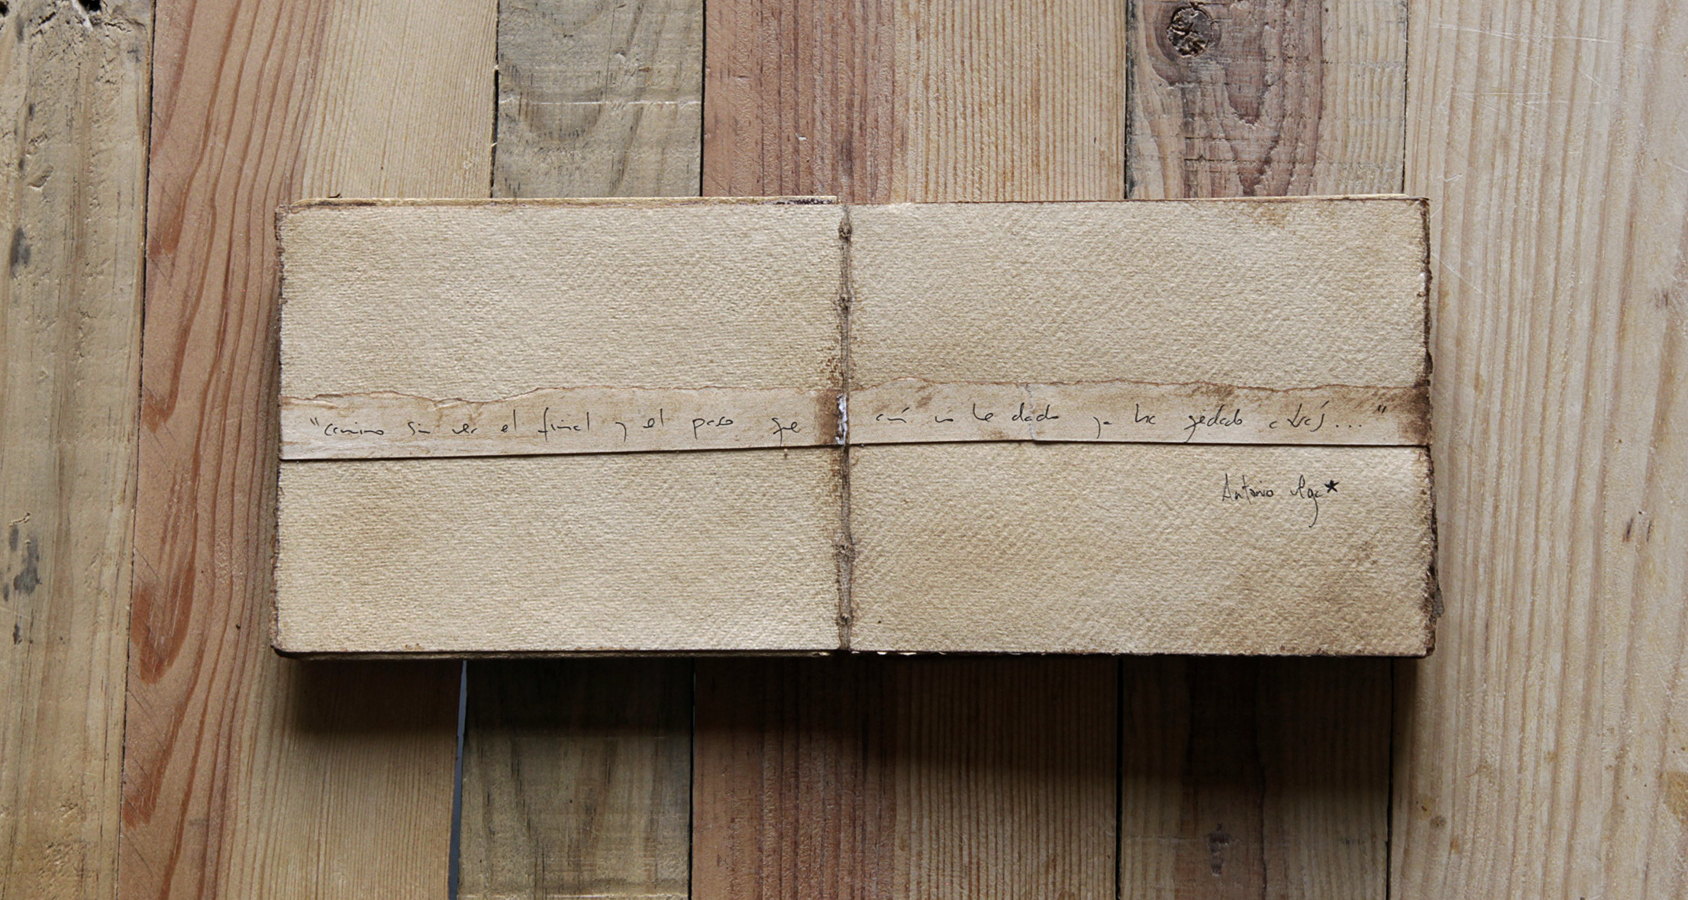 "camino sin ver el final y el paso que aún no he dado ya ha quedado atrás..."
Antonio Vega*